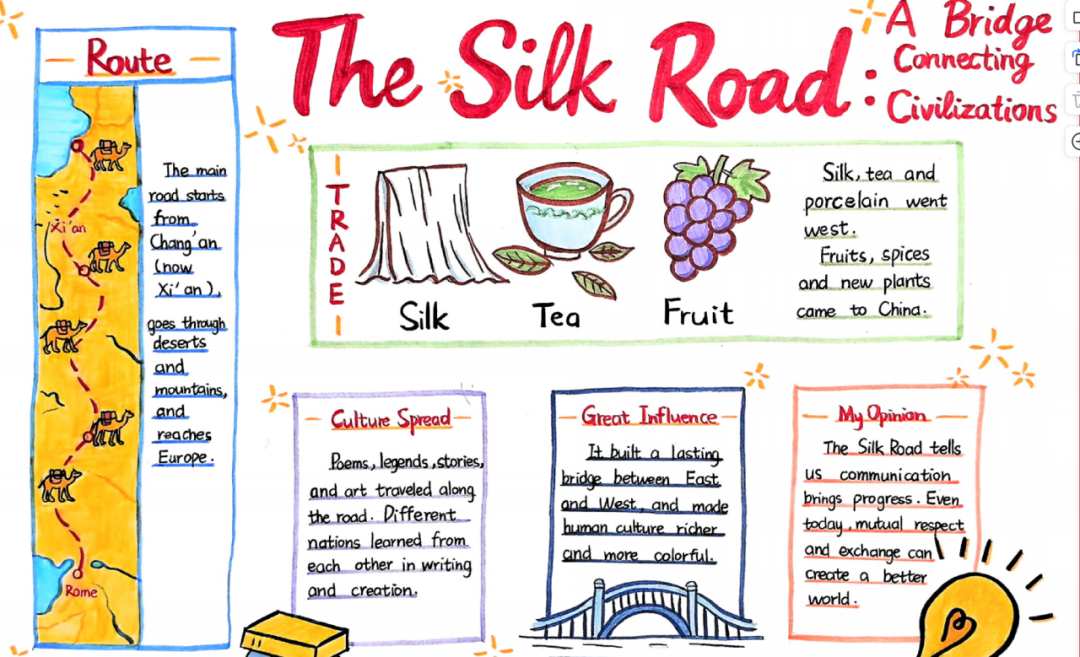 The Silk Road:
A Bridge
Connecting
Civilizations
Route
Xi'an
Rome
The main
road starts
from
Chang'an
(now
Xi'an),
goes through
deserts
and
mountains,
and
reaches
Europe.
TRADE
Silk
Tea
Fruit
Silk, tea and
porcelain went
west.
Fruits, spices
and new plants
came to China.
Culture Spread
Poems, legends, stories,
and art traveled along
the road. Different
nations learned from
each other in writing
and creation.
Great Influence
It built a lasting
bridge between East
and West, and made
human culture richer
and more colorful.
My Opinion
The Silk Road tells
us communication
brings progress. Even
today, mutual respect
and exchange can
create a better
world.